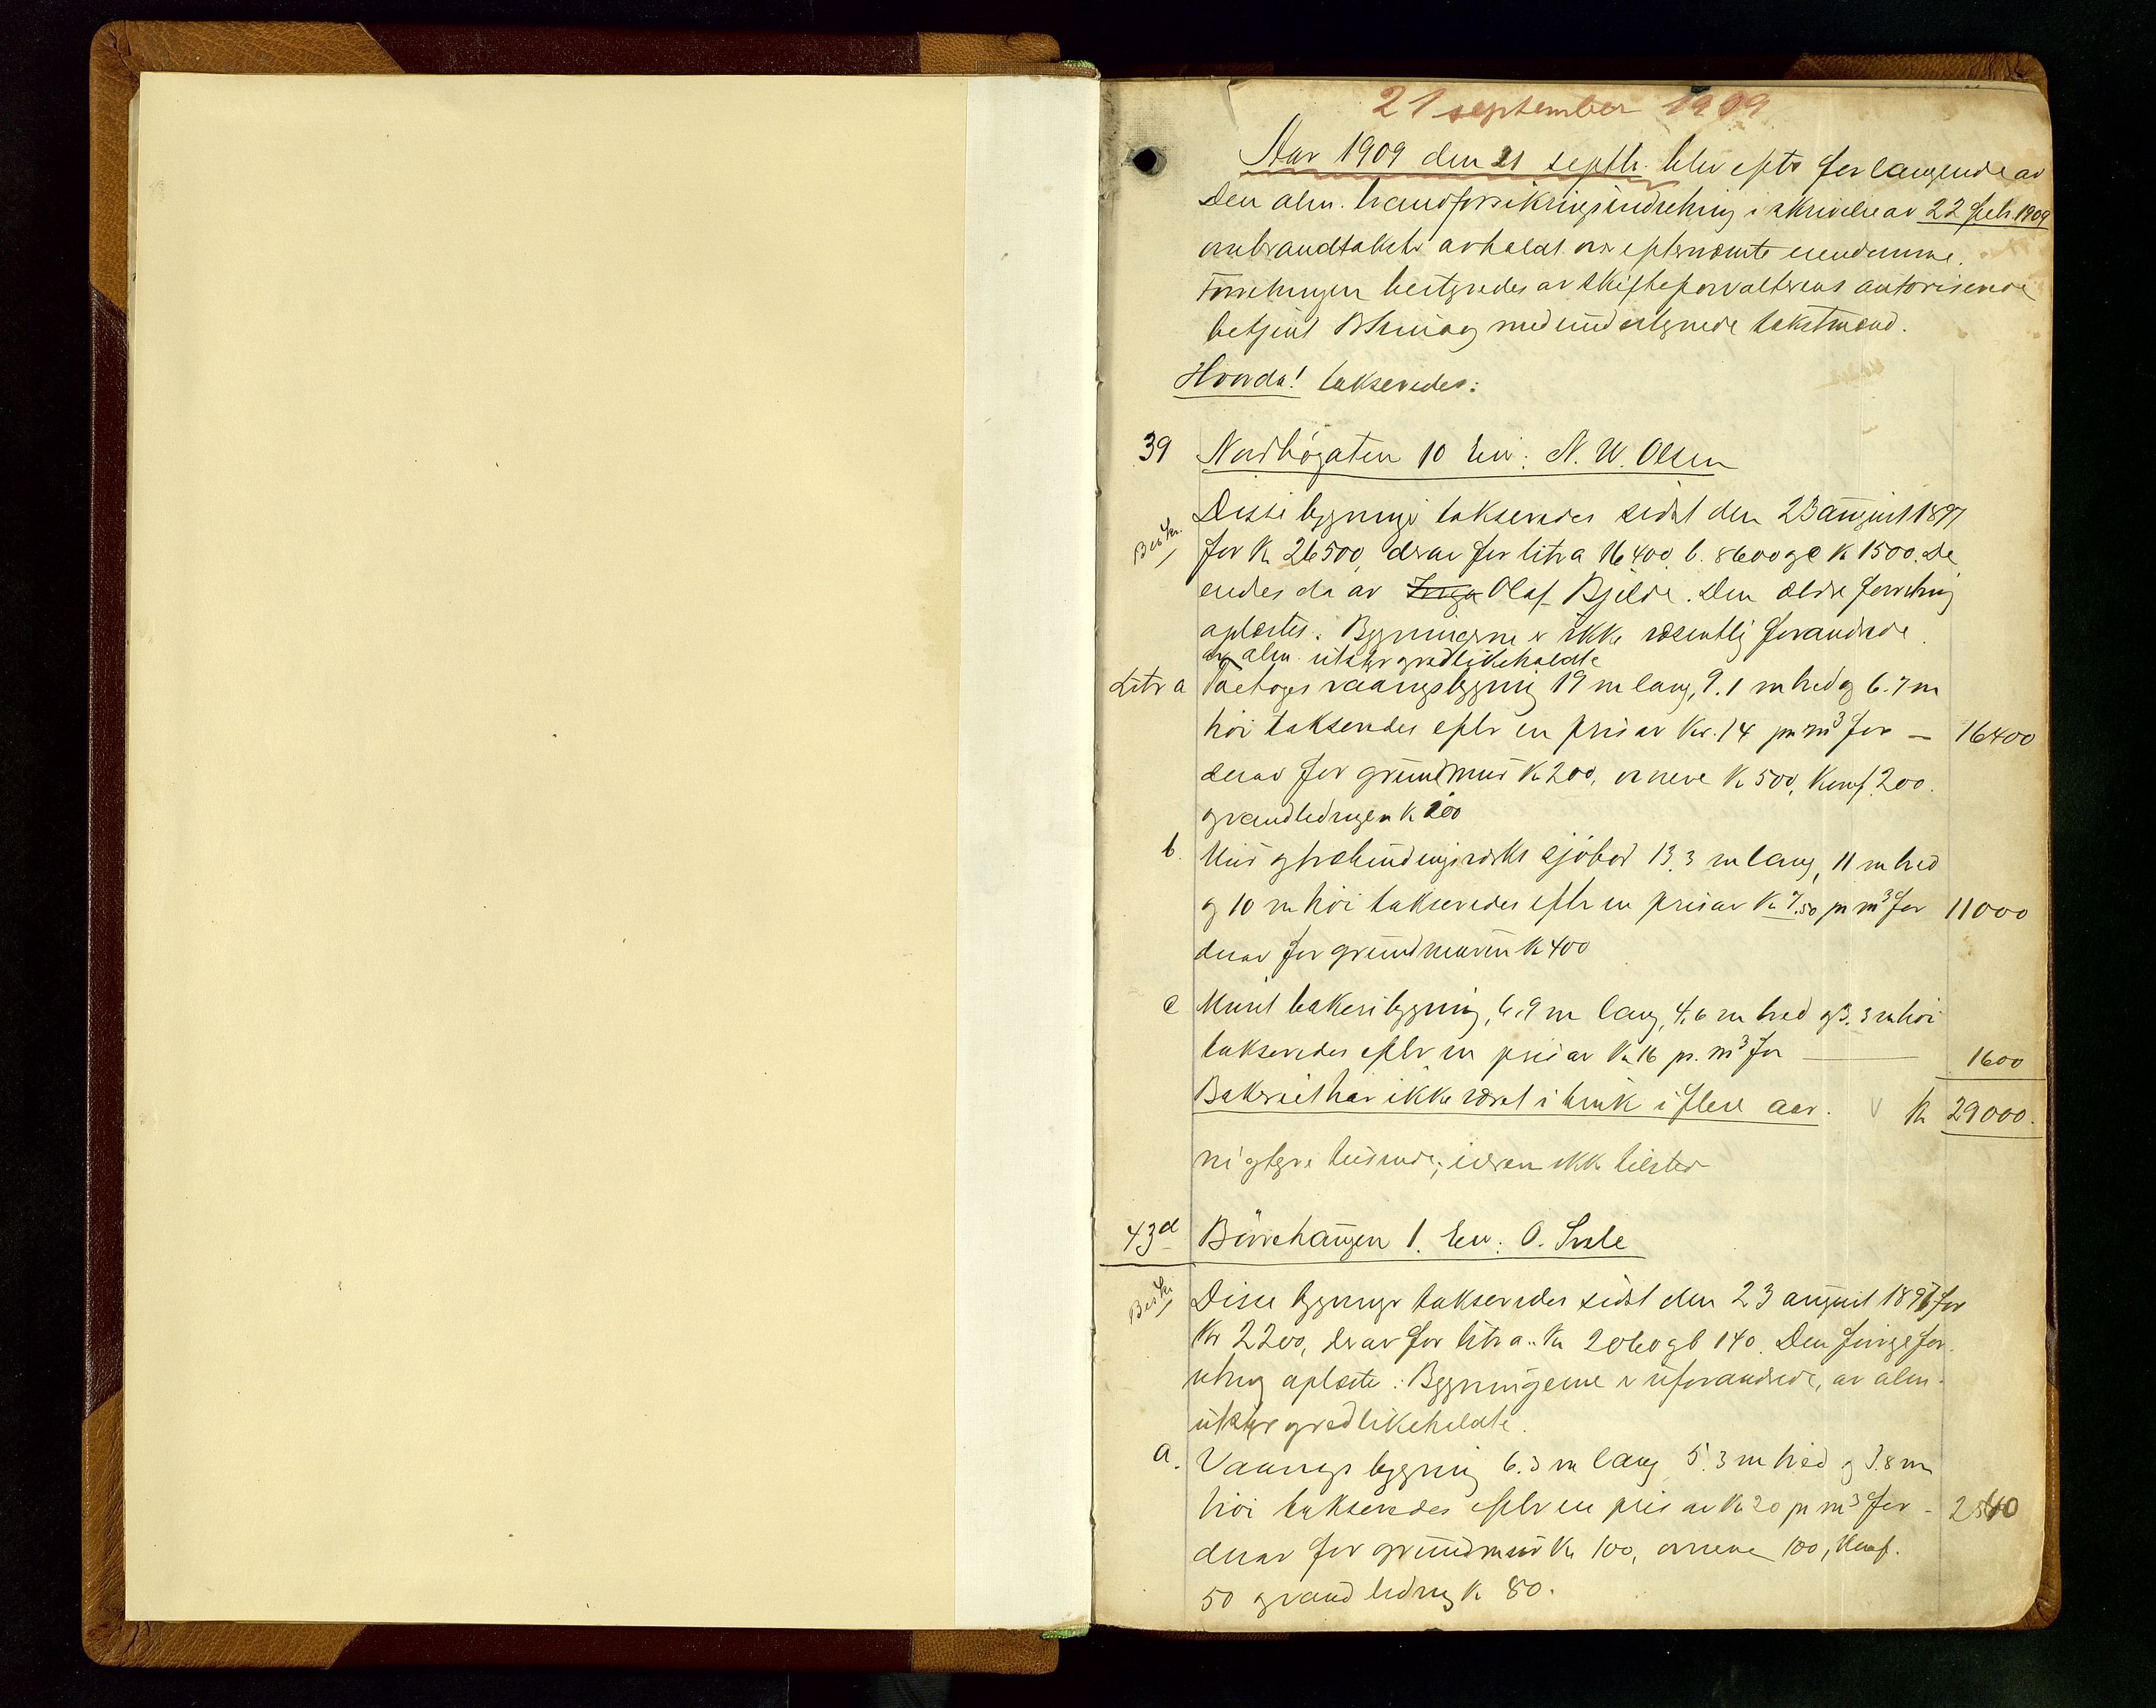 21 september 1909
Aar 1909 den 21 septbr. blev efter forlangende av
Den alm. brandforsikringsindretning i skrivelse av 22 febr. 1909
ombrandtakster avholdt over efternævnte eiendomme.
Forretningen bestyredes av skifteforvalterens autoriserede
betjent med undertegnede takstmænd.
Hvorda! takseredes:
39 Nordbøgaten 10 Eier: N. W. Olsen
Beskr. Disse bygninger takseredes sidst den 23 august 1897
for Kr 26500, derav for litra a 16400, b. 8600 og c K 1500. De
eiedes da av Olaf Bjelde. Den ældre forretning
oplæstes. Bygningerne er ikke væsentlig forandrede
av alm. utstyr og vedlikeholdte
Litr a Toetages vaaningsbygning 19 m lang, 9.1 m bred og 6.7 m
høi takseredes efter en pris av Kr. 14 pr m³ for — 16400
derav for grundmur Kr 200, ovnene Kr 500, Komf. 200.
og vandledningen K 200
b. Mur og træbindingsverks sjøbod 13.3 m lang, 11 m bred
og 10 m høi takseredes efter en pris av Kr 7.50 pr m³ for 11000
derav for grundmuren K 400
c Muret bakeribygning, 6,9 m lang, 4,6 m bred og 3.3 m høi
takseredes efter en pris av Kr 16 pr. m³ for — 1600
Bakeriet har ikke været i bruk i flere aar. V Kr 29000.
ni og tyve tusinde; eieren ikke tilsted
43d Börehaugen 1. Eier: O. Svele
Beskr Disse bygninger takseredes sidst den 23 august 1897 for
Kr 2200, derav for litr a.. Kr 2060 og b 140. Den forrige for-
retning oplæste: Bygningerne er uforandrede, av alm.
utstyr og vedlikeholdte.
a. Vaaningsbygning 6.3 m lang 5.3 m bred og 3.8 m
høi takseredes efter en pris av Kr 20 pr m³ for - 2540
derav for grundmur Kr 100, ovnene 100, Komf.
50 og vandledning K 80.